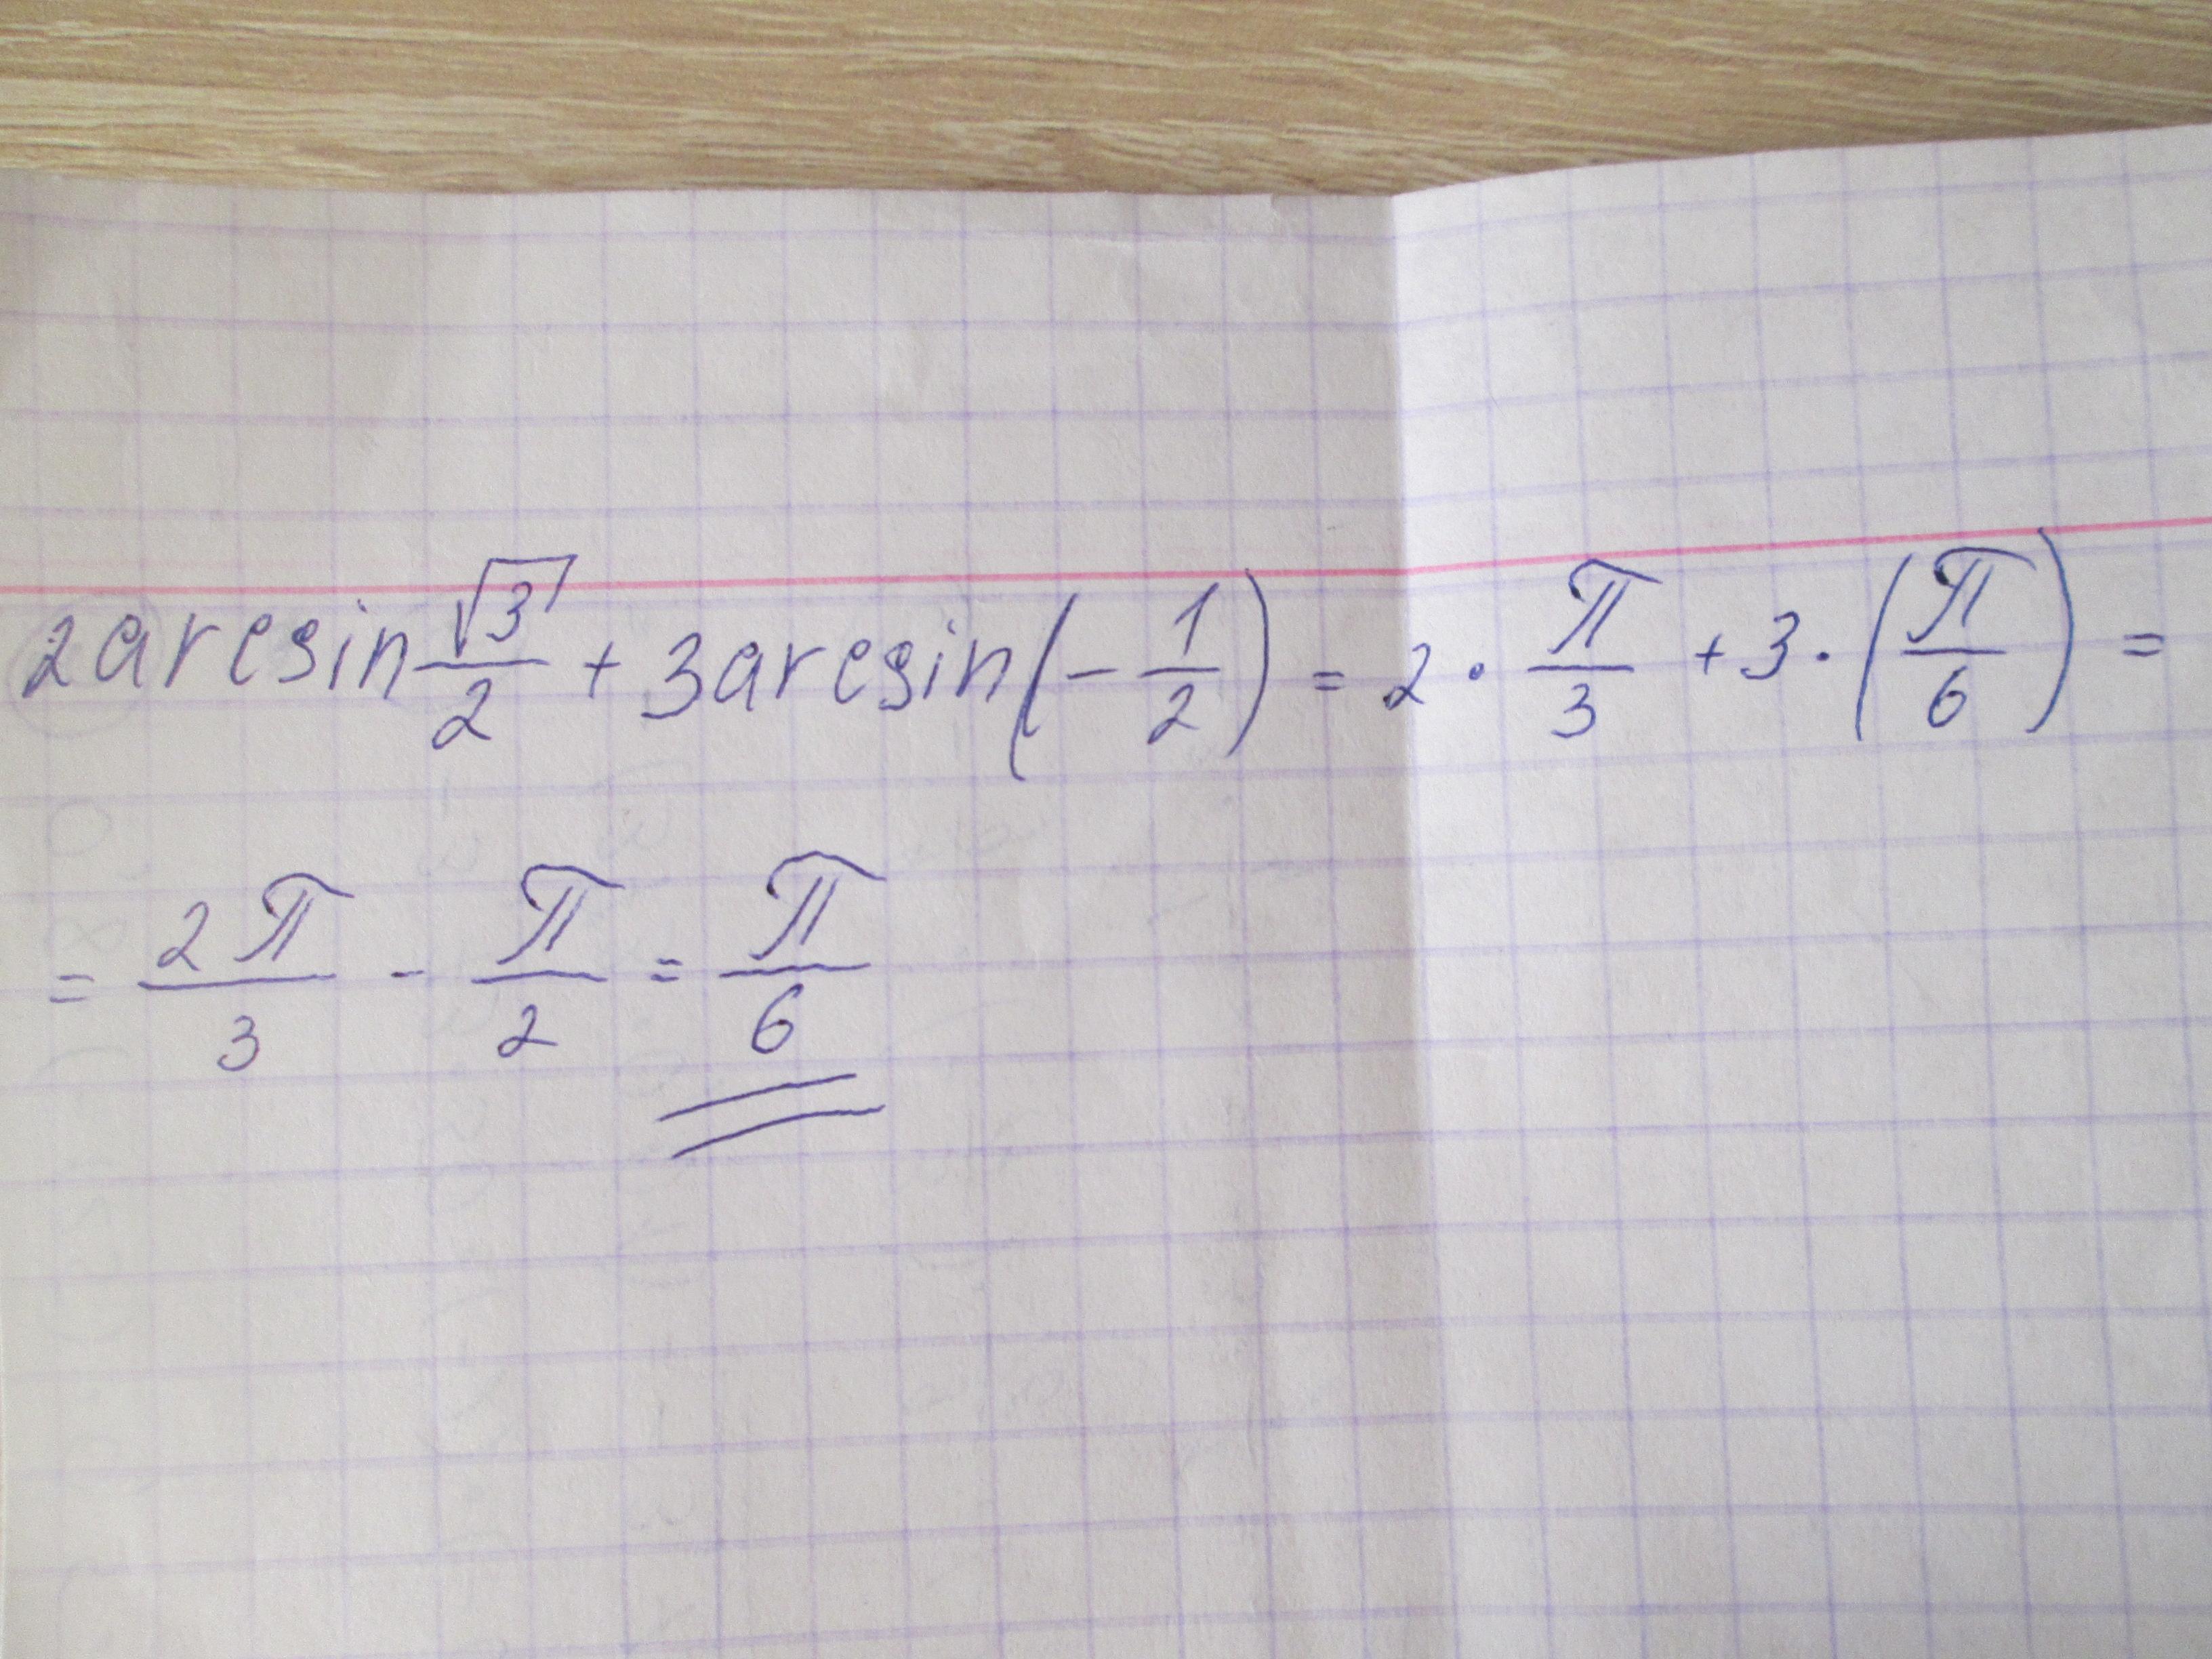 2 arcsin √3/2 + 3 arcsin(- 1/2) = 2 · π/3 + 3 · (π/6) =
= 2π/3 - π/2 = π/6